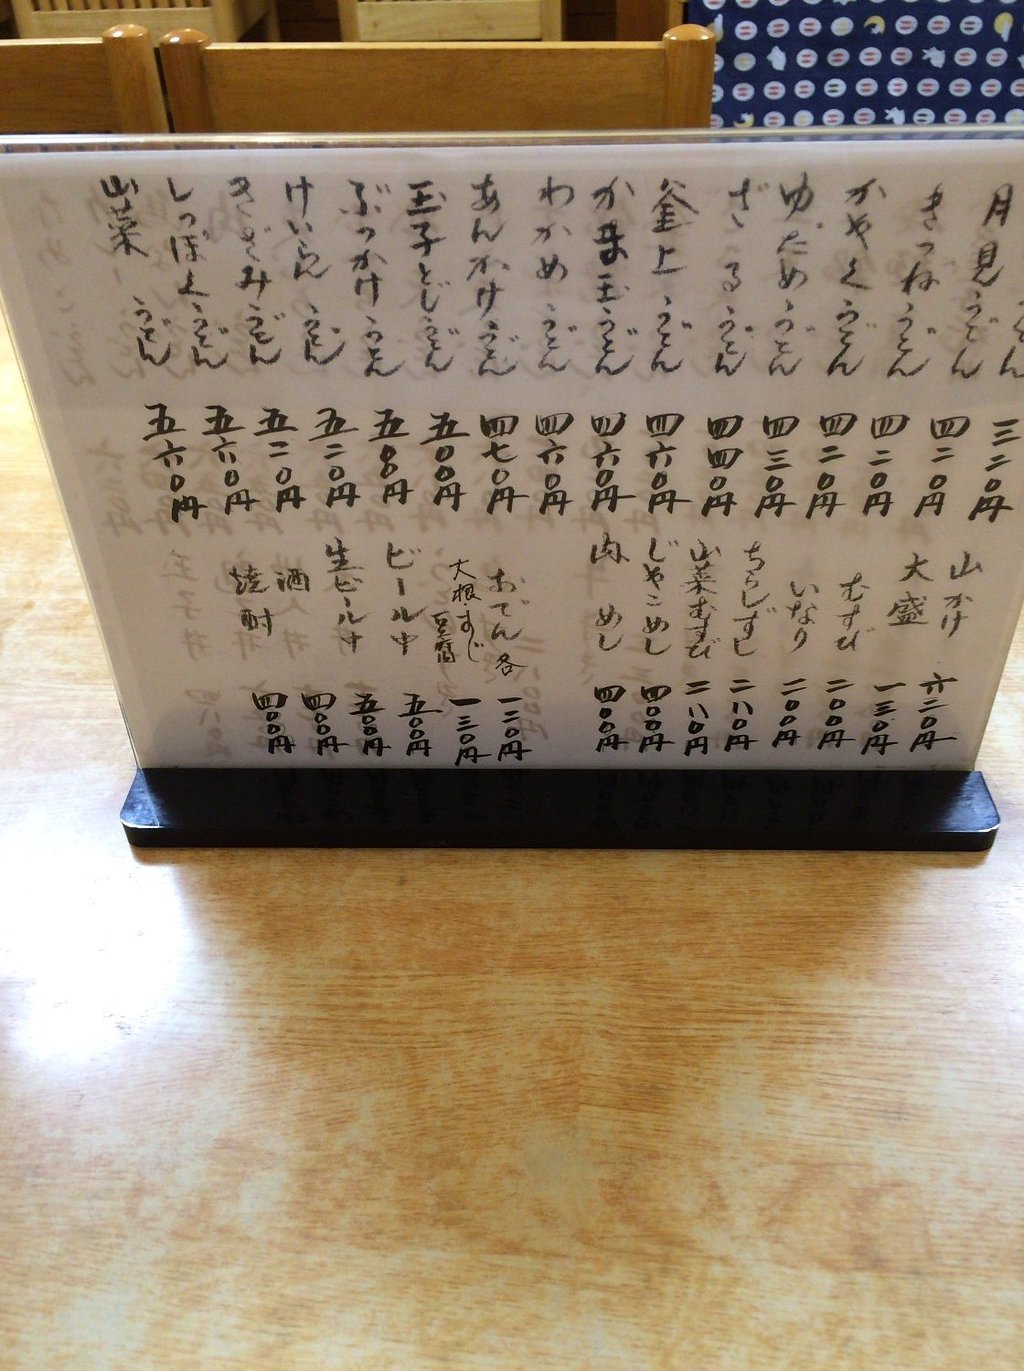 うどん 三二〇円
月見うどん 四二〇円
きつねうどん 四二〇円
かやくうどん 四二〇円
ゆだめうどん 四三〇円
ざるうどん 四四〇円
釜上うどん 四六〇円
かま玉うどん 四六〇円
わかめうどん 四六〇円
あんかけうどん 四七〇円
玉子とじうどん 五〇〇円
ぶっかけうどん 五〇〇円
けいらんうどん 五二〇円
きざみうどん 五二〇円
しっぽくうどん 五六〇円
山菜うどん 五六〇円
山かけ 六二〇円
大盛 一三〇円
むすび 二〇〇円
いなり 二〇〇円
ちらしずし 二八〇円
山菜むすび 二八〇円
じゃこめし 四〇〇円
肉めし 四〇〇円
おでん各 一二〇円
大根・すじ 一三〇円
豆腐
ビール中 五〇〇円
生ビール中 五〇〇円
酒 四〇〇円
焼酎 四〇〇円